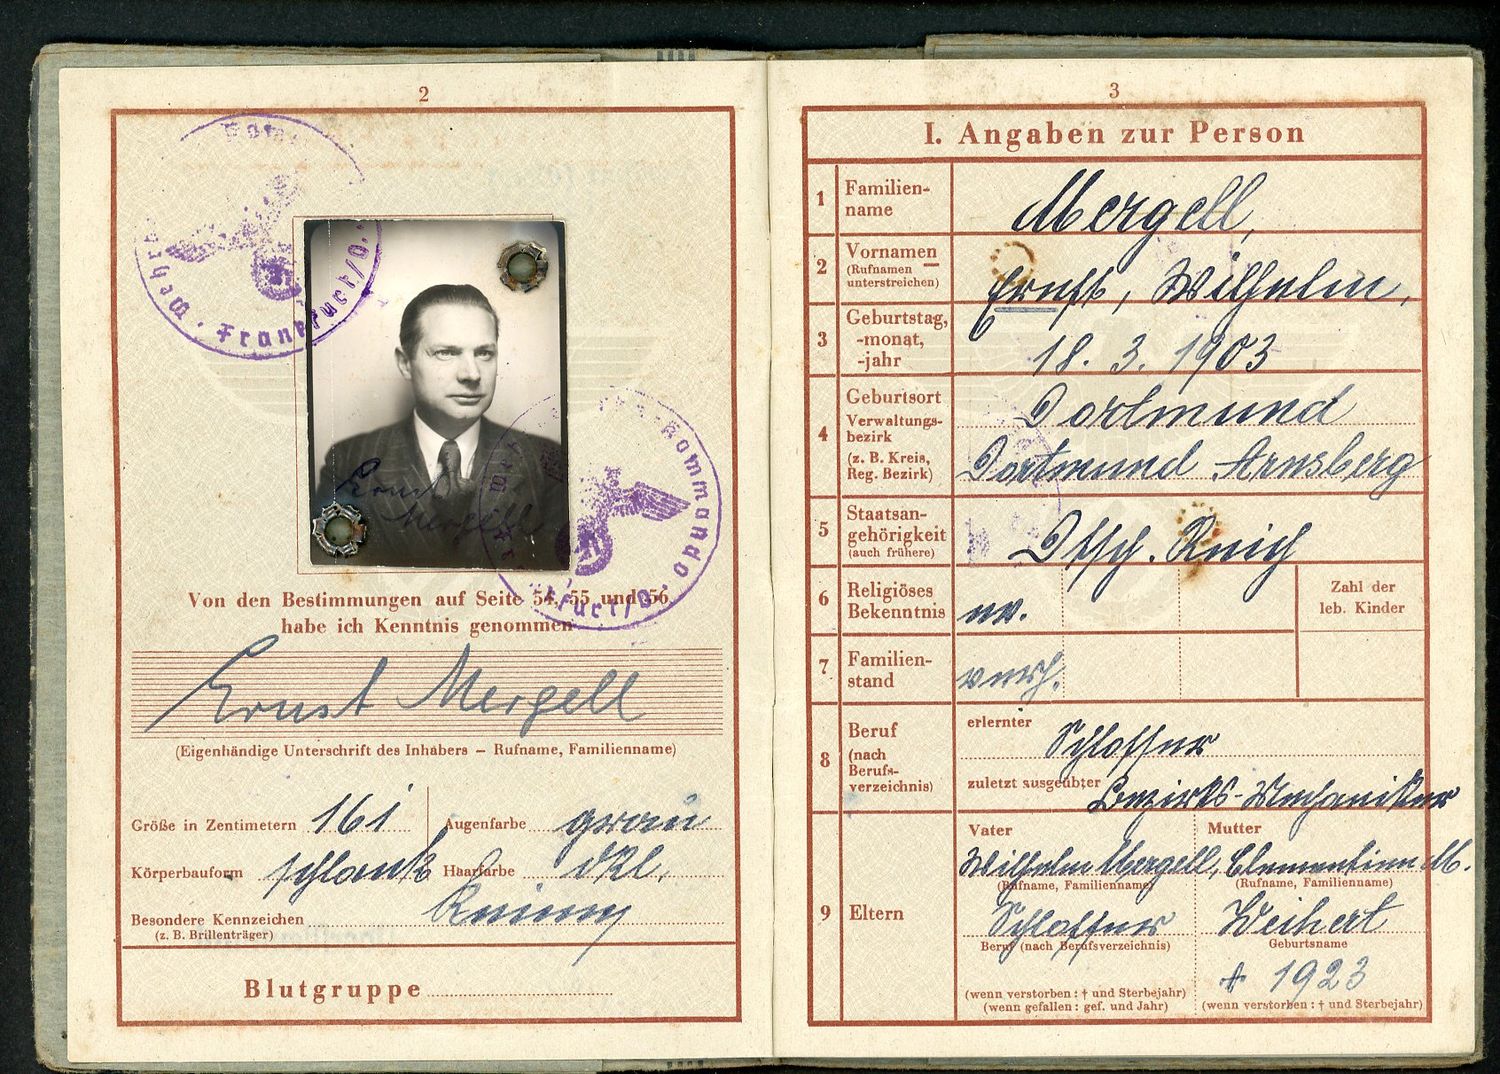 2
Frankfurt/O.
Ernst
Mergell
Kommando
Von den Bestimmungen auf Seite 54, 55 und 56
habe ich Kenntnis genommen
Ernst Mergell
(Eigenhändige Unterschrift des Inhabers – Rufname, Familienname)
Größe in Zentimetern 161 Augenfarbe grau
Körperbauform schlank Haarfarbe dkl.
Besondere Kennzeichen
(z. B. Brillenträger)
Blutgruppe
3
I. Angaben zur Person
1 Familien-
name Mergell,
2 Vornamen
(Rufnamen
unterstreichen) Ernst, Wilhelm,
3 Geburtstag,
-monat,
-jahr 18. 3. 1903
4 Geburtsort Dortmund
Verwaltungs-
bezirk
(z. B. Kreis,
Reg. Bezirk) Dortmund Arnsberg
5 Staatsan-
gehörigkeit
(auch frühere) Dtsch. Reich
6 Religiöses
Bekenntnis ev.
Zahl der
leb. Kinder
7 Familien-
stand verh.
8 Beruf
(nach
Berufs-
verzeichnis)
erlernter Schlosser
zuletzt ausgeübter Bezirks-Mechaniker
9 Eltern
Vater
Wilhelm Mergell,
(Rufname, Familienname)
Schlosser
Beruf (nach Berufsverzeichnis)
(wenn verstorben: † und Sterbejahr)
(wenn gefallen: gef. und Jahr)
Mutter
Clementine M.
(Rufname, Familienname)
Weihert
Geburtsname
† 1923
(wenn verstorben: † und Sterbejahr)